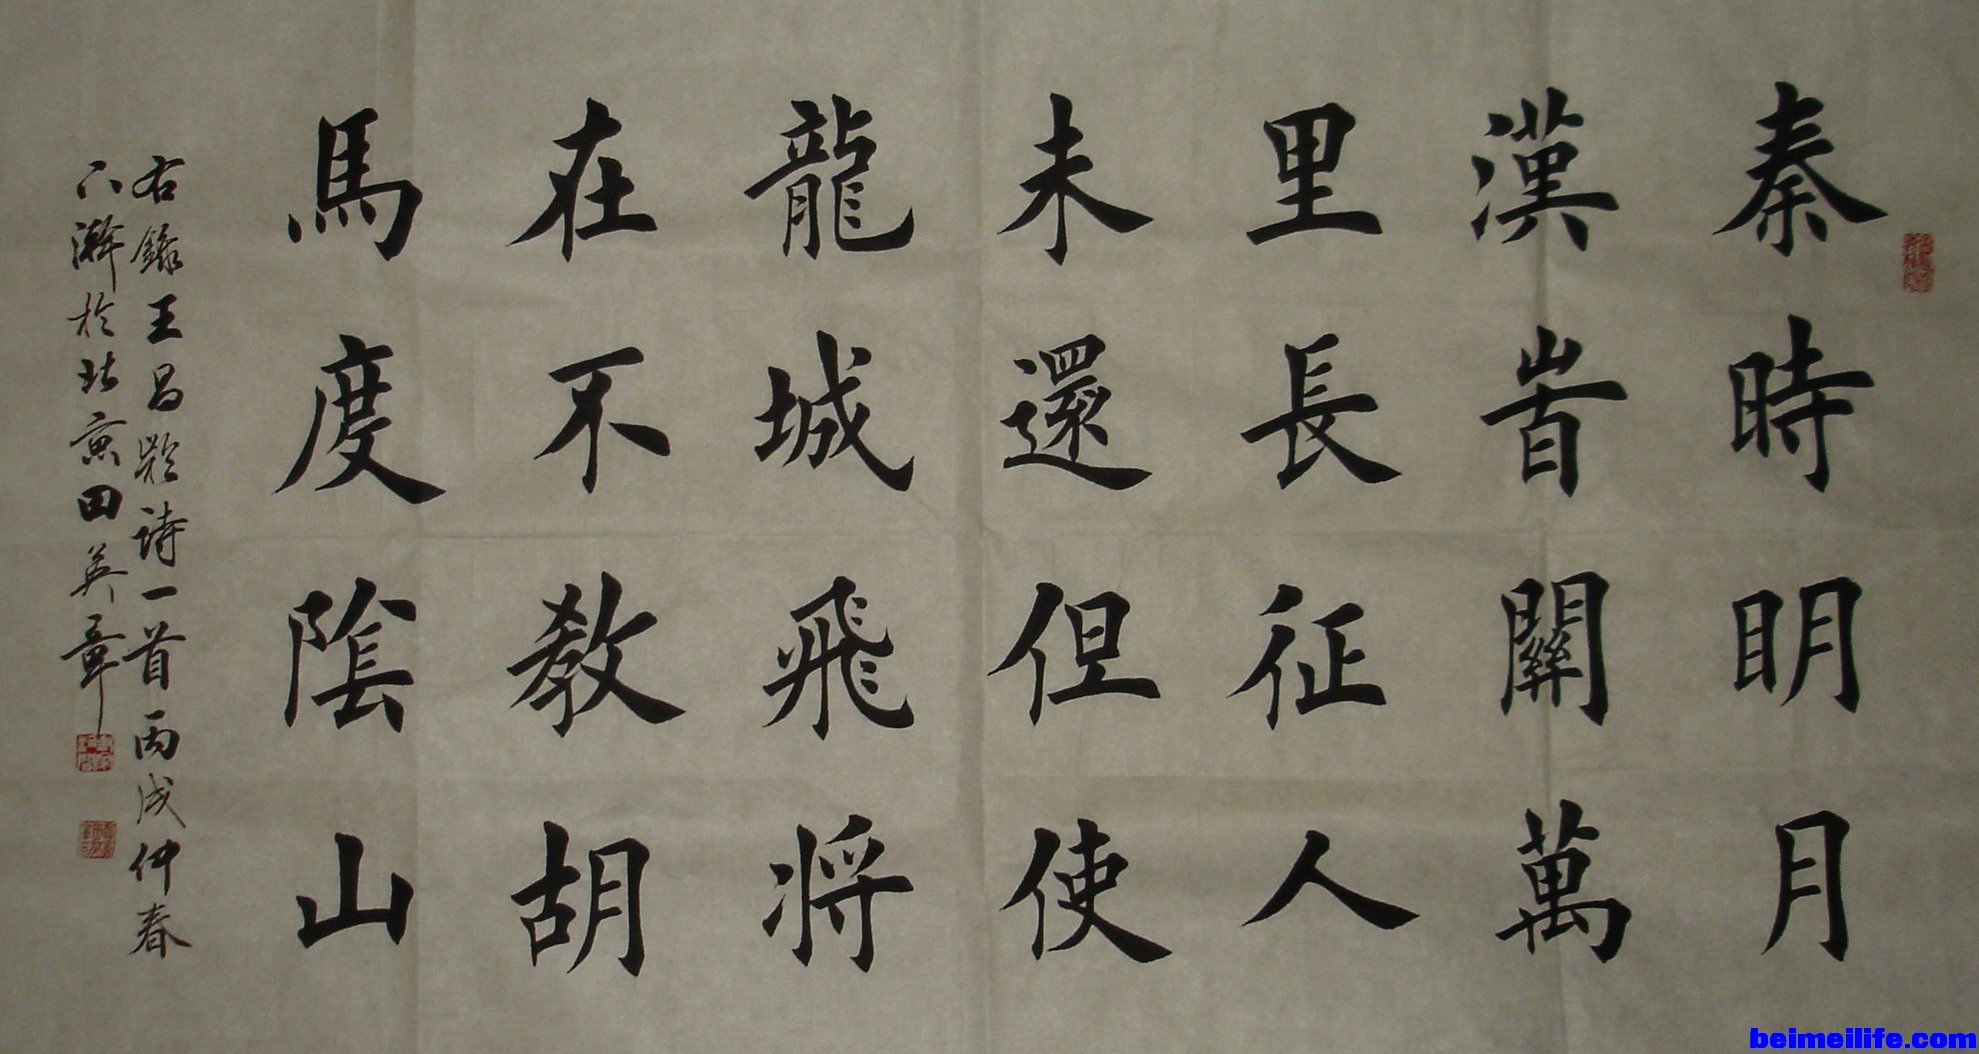 秦時明月
漢旹關萬
里長征人
未還但使
龍城飛将
在不教胡
馬度陰山
右錄王昌齡詩一首丙戌仲春
下澣於北京田英章
beimeilife.com